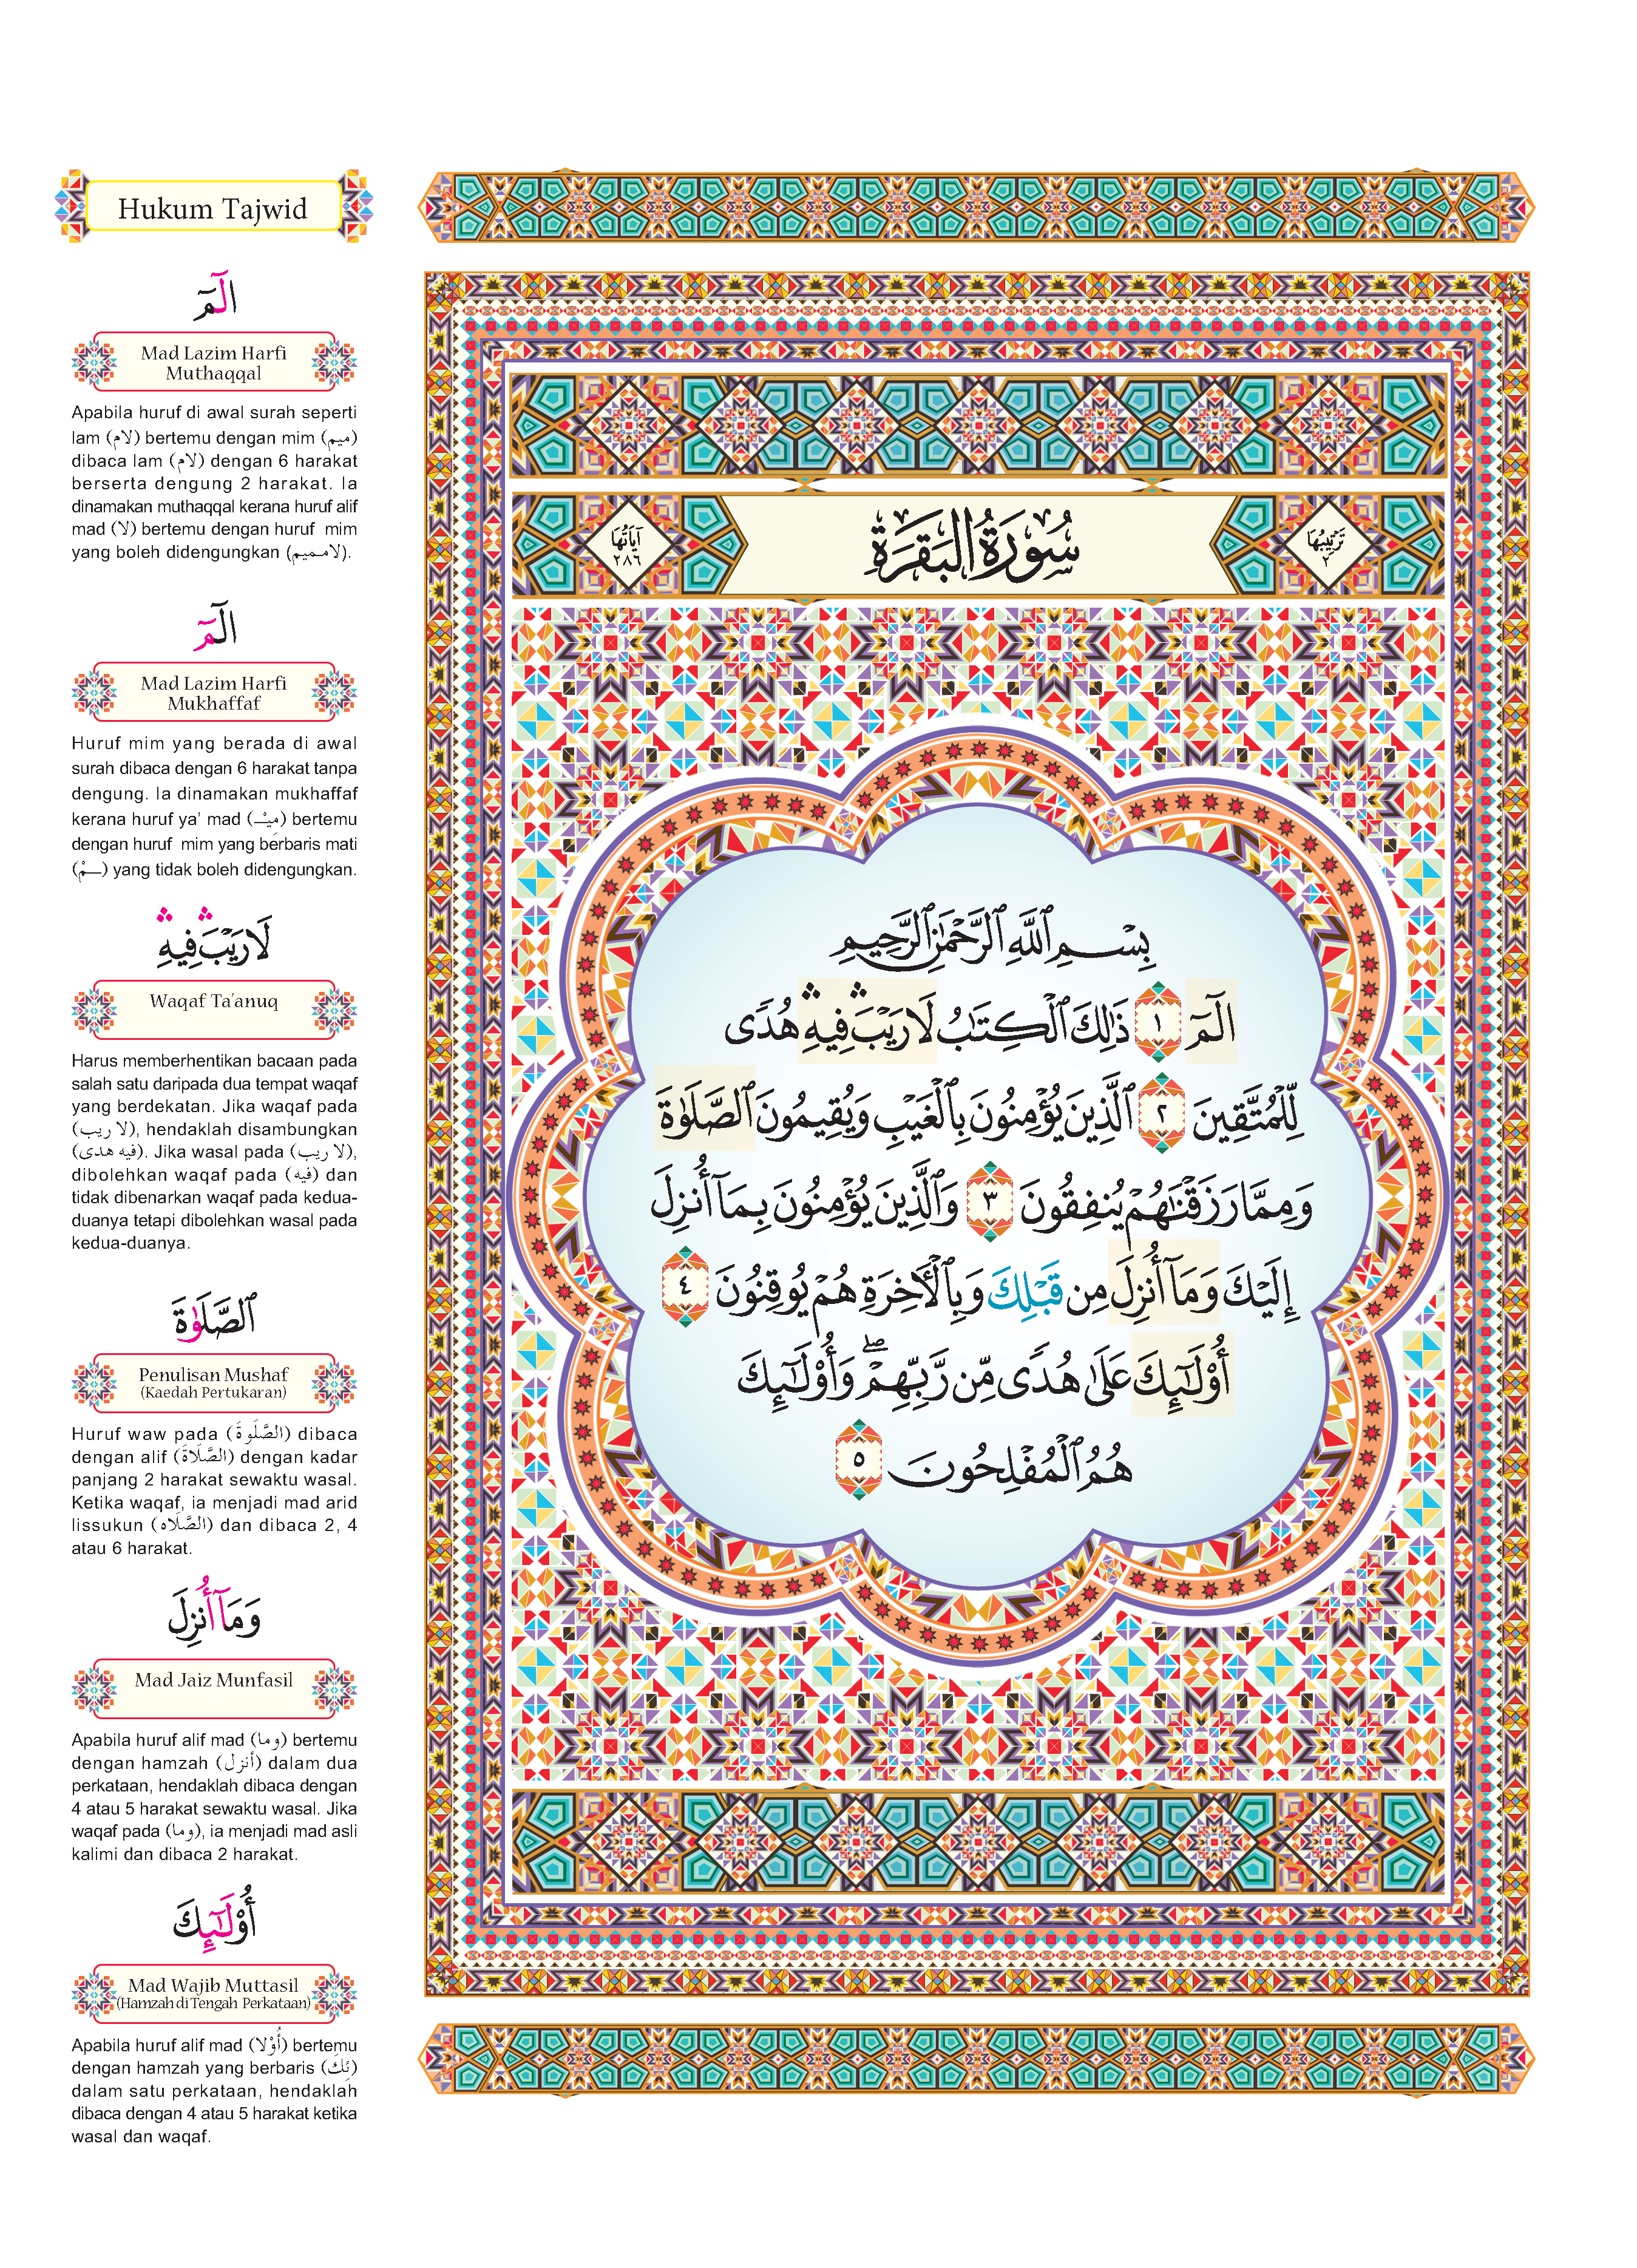 Hukum Tajwid
الٓمٓ
Mad Lazim Harfi
Muthaqqal
Apabila huruf di awal surah seperti
lam (لام) bertemu dengan mim (ميم)
dibaca lam (لام) dengan 6 harakat
berserta dengung 2 harakat. Ia
dinamakan muthaqqal kerana huruf alif
mad (لا) bertemu dengan huruf mim
yang boleh didengungkan (لامـميم).
الٓمٓ
Mad Lazim Harfi
Mukhaffaf
Huruf mim yang berada di awal
surah dibaca dengan 6 harakat tanpa
dengung. Ia dinamakan mukhaffaf
kerana huruf ya’ mad (مِيْـ) bertemu
dengan huruf mim yang berbaris mati
(ـمْ) yang tidak boleh didengungkan.
لَا رَيْبَ ۛ فِيهِ ۛ
Waqaf Ta’anuq
Harus memberhentikan bacaan pada
salah satu daripada dua tempat waqaf
yang berdekatan. Jika waqaf pada
(لا ريب), hendaklah disambungkan
(فيه هدى). Jika wasal pada (لا ريب),
dibolehkan waqaf pada (فيه) dan
tidak dibenarkan waqaf pada kedua-
duanya tetapi dibolehkan wasal pada
kedua-duanya.
ٱلصَّلَوٰةَ
Penulisan Mushaf
(Kaedah Pertukaran)
Huruf waw pada (الصَّلَوةَ) dibaca
dengan alif (الصَّلَاةَ) dengan kadar
panjang 2 harakat sewaktu wasal.
Ketika waqaf, ia menjadi mad arid
lissukun (الصَّلَاه) dan dibaca 2, 4
atau 6 harakat.
وَمَآ أُنزِلَ
Mad Jaiz Munfasil
Apabila huruf alif mad (وما) bertemu
dengan hamzah (أنزل) dalam dua
perkataan, hendaklah dibaca dengan
4 atau 5 harakat sewaktu wasal. Jika
waqaf pada (وما), ia menjadi mad asli
kalimi dan dibaca 2 harakat.
أُوْلَٰٓئِكَ
Mad Wajib Muttasil
(Hamzah di Tengah Perkataan)
Apabila huruf alif mad (أُوْلا) bertemu
dengan hamzah yang berbaris (ئِكَ)
dalam satu perkataan, hendaklah
dibaca dengan 4 atau 5 harakat ketika
wasal dan waqaf.
تَرْتِيبُهَا ٢
سُورَةُ البَقَرَةِ
آيَاتُهَا ٢٨٦
بِسْمِ ٱللَّهِ ٱلرَّحْمَٰنِ ٱلرَّحِيمِ
الٓمٓ ١ ذَٰلِكَ ٱلْكِتَٰبُ لَا رَيْبَ ۛ فِيهِ ۛ هُدًى
لِّلْمُتَّقِينَ ٢ ٱلَّذِينَ يُؤْمِنُونَ بِٱلْغَيْبِ وَيُقِيمُونَ ٱلصَّلَوٰةَ
وَمِمَّا رَزَقْنَٰهُمْ يُنفِقُونَ ٣ وَٱلَّذِينَ يُؤْمِنُونَ بِمَآ أُنزِلَ
إِلَيْكَ وَمَآ أُنزِلَ مِن قَبْلِكَ وَبِٱلْأَخِرَةِ هُمْ يُوقِنُونَ ٤
أُوْلَٰٓئِكَ عَلَىٰ هُدًى مِّن رَّبِّهِمْ ۖ وَأُوْلَٰٓئِكَ
هُمُ ٱلْمُفْلِحُونَ ٥